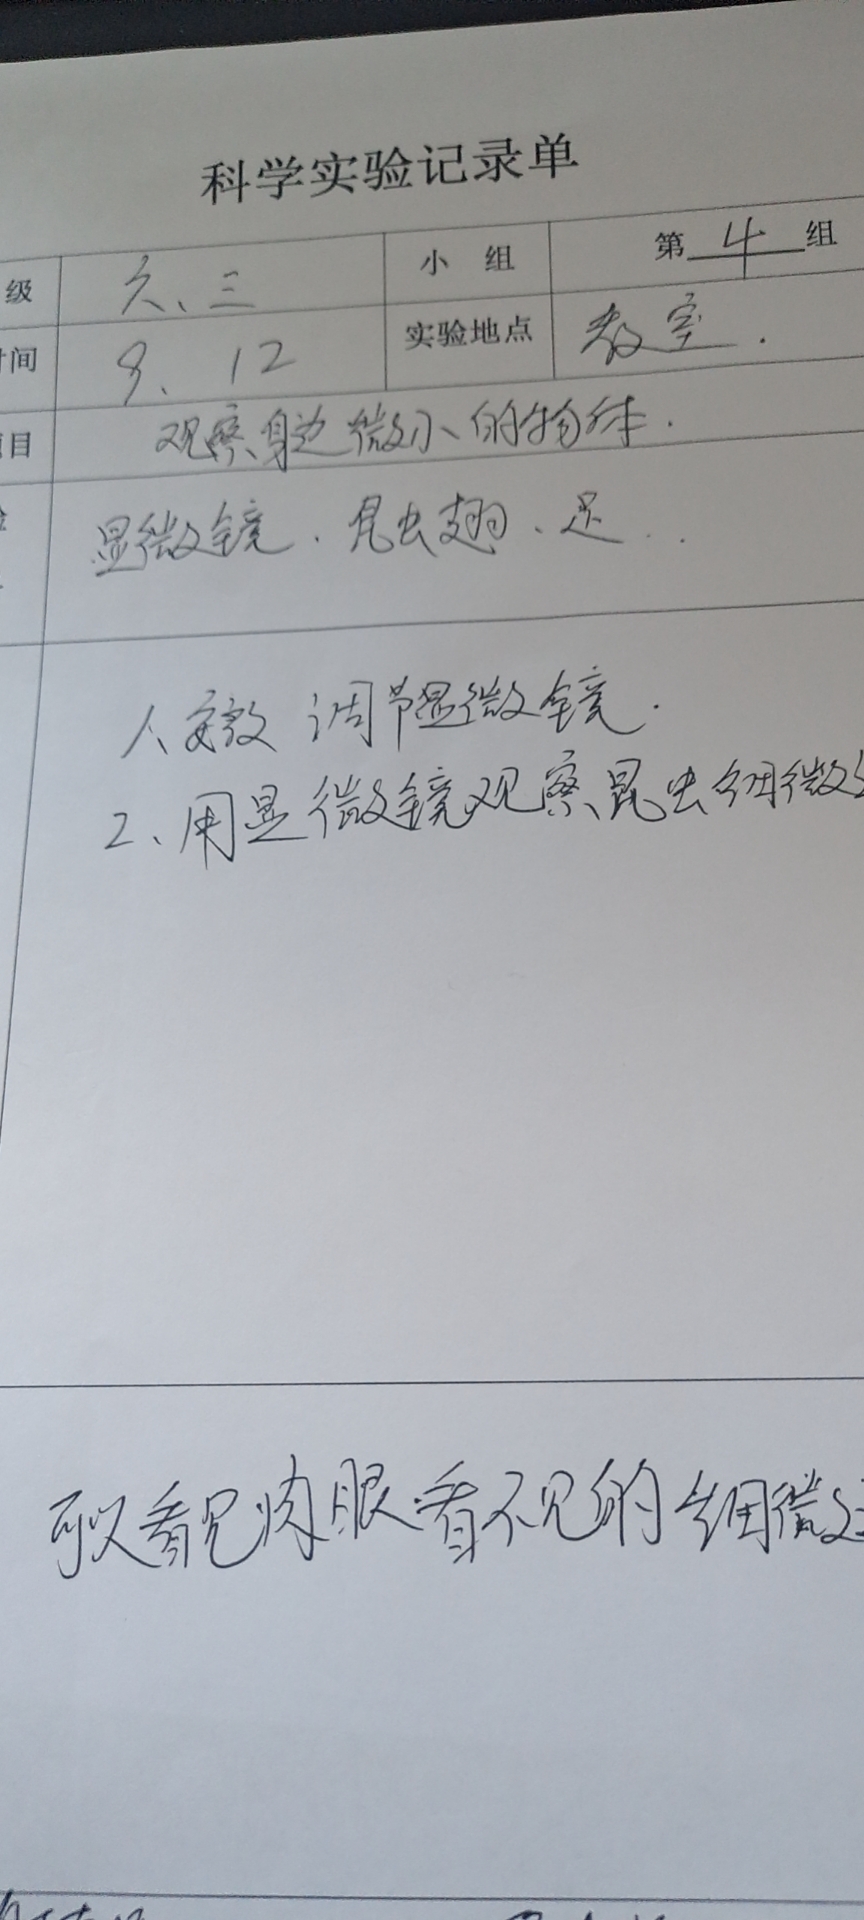 科学实验记录单
级 六、三 小 组 第 4 组
时间 9、12 实验地点 教室.
项目 观察身边微小的物体.
验 显微镜、昆虫翅、足...
调节显微镜.
2、用显微镜观察昆虫细微
可以看见肉眼看不见的细微